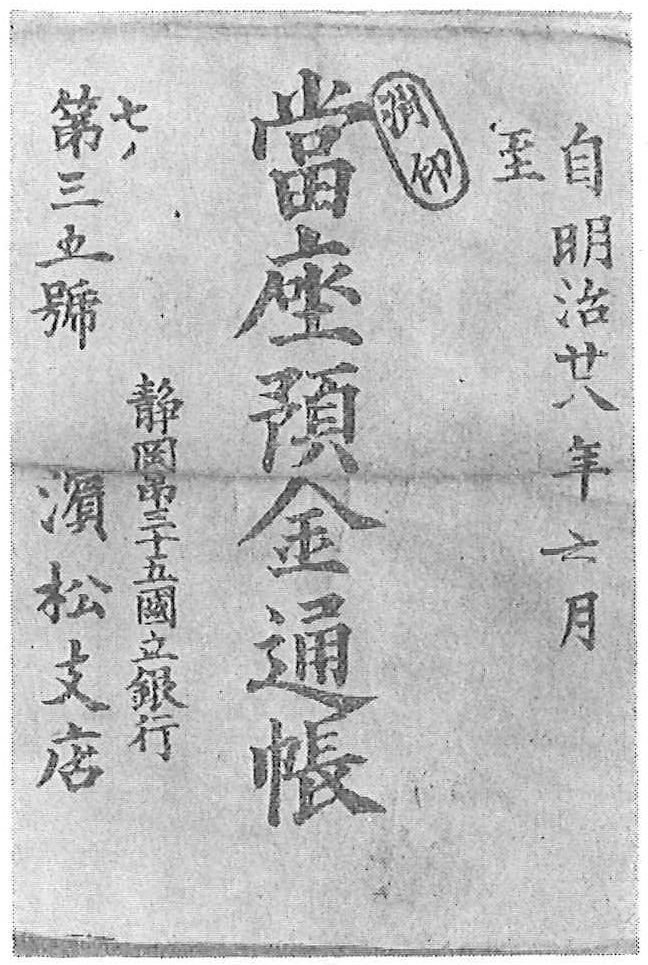 自明治廿八年六月
至
割印
當座預金通帳
静岡第三十五國立銀行
濱松支店
七ノ
第三五號